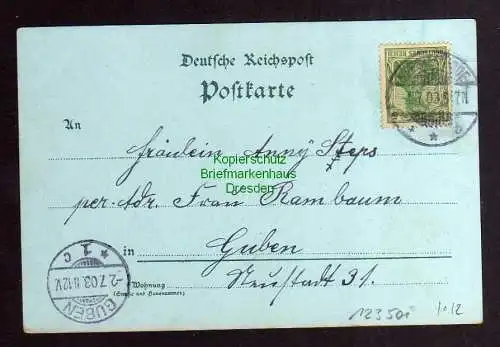 Deutsche Reichspost
Postkarte
An
Fräulein Anny Steps
Kopierschutz
Briefmarkenhaus
Dresden
per. Adr. Frau Rambaum
in Guben
Wohnung
(Straße und Hausnummer)
Neustadt 31.
GUBEN
* 1 c
2.7.03.11-12V.
12350i
10/2